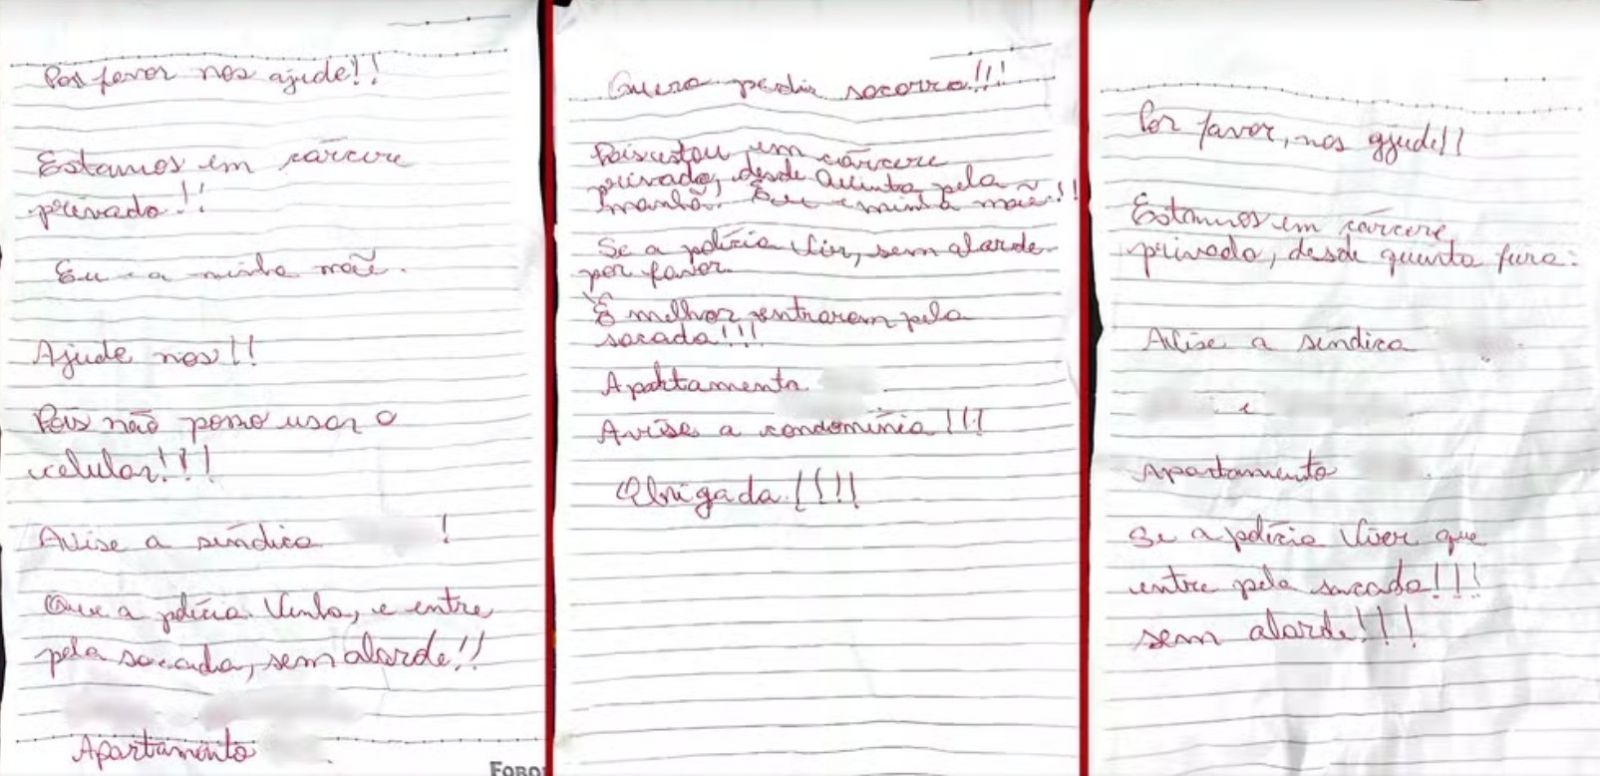 Por favor nos ajude!!
Estamos em cárcere
privado!!
Eu e a minha mãe.
Ajude nos!!
Pois não posso usar o
celular!!!
Avise a síndica !
Que a polícia Venha, e entre
pela sacada, sem alarde!!
Apartamento
Quero pedir socorro!!!
Pois estou em cárcere
privado, desde Quinta pela
manhã. Eu e minha mãe!!
Se a polícia Vir, sem alarde
por favor.
É melhor entrarem pela
sacada!!!
Apartamento
Avise a condomínia!!!
Obrigada!!!!
Por favor, nos ajude!!
Estamos em cárcere
privado, desde quinta feira.
Avise a síndica
e
Apartamento
Se a polícia Vier que
entre pela sacada!!!
sem alarde!!!